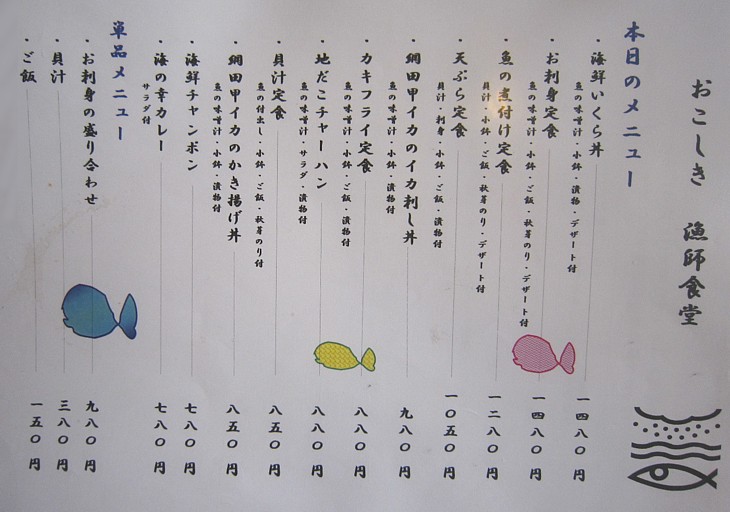 おこしき 漁師食堂
本日のメニュー
・海鮮いくら丼 一四八〇円
魚の味噌汁・小鉢・漬物・デザート付
・お刺身定食 一四八〇円
魚の味噌汁・小鉢・ご飯・秋芽のり・デザート付
・魚の煮付け定食 一二八〇円
貝汁・小鉢・ご飯・秋芽のり・デザート付
・天ぷら定食 一〇五〇円
貝汁・刺身・小鉢・ご飯・漬物付
・網田甲イカのイカ刺し丼 九八〇円
魚の味噌汁・小鉢・漬物付
・カキフライ定食 八八〇円
魚の味噌汁・小鉢・ご飯・漬物付
・地だこチャーハン 八八〇円
魚の味噌汁・サラダ・漬物付
・貝汁定食 八五〇円
魚の付出し・小鉢・ご飯・秋芽のり付
・網田甲イカのかき揚げ丼 八五〇円
魚の味噌汁・小鉢・漬物付
・海鮮チャンポン 七八〇円
・海の幸カレー 七八〇円
サラダ付
単品メニュー
・お刺身の盛り合わせ 九八〇円
・貝汁 三八〇円
・ご飯 一五〇円